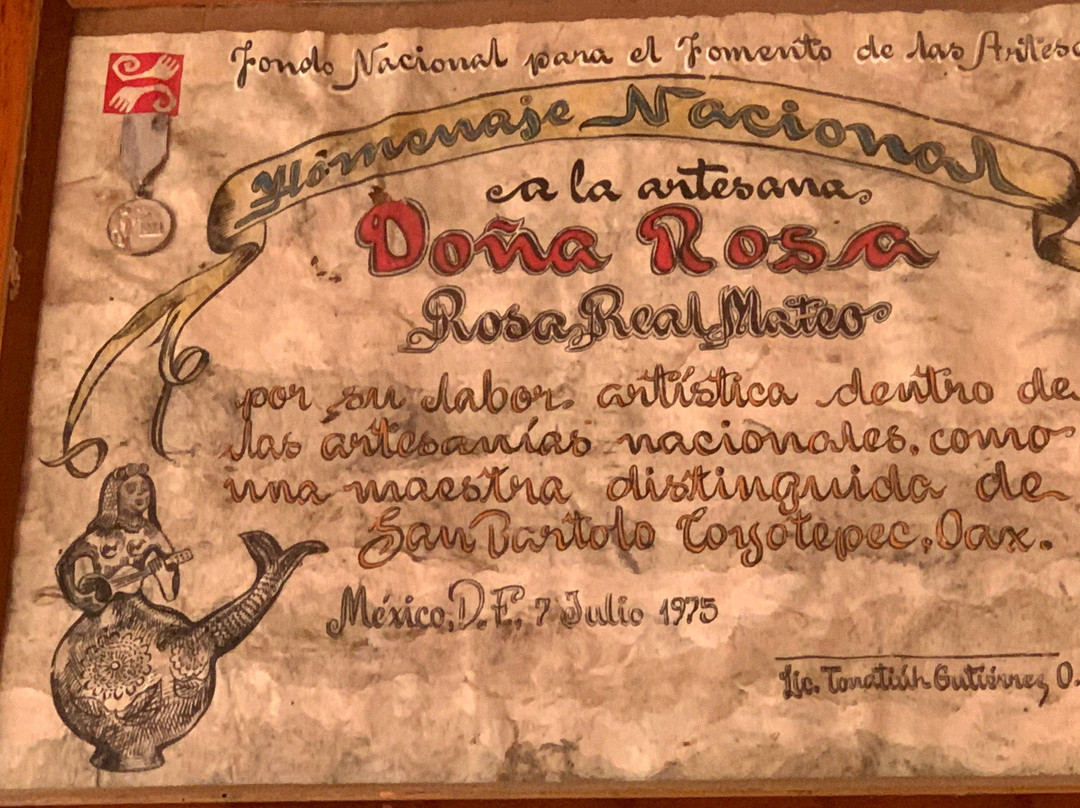 Fondo Nacional para el Fomento de las Artesa
Homenaje Nacional
a la artesana,
Doña Rosa
Rosa Real Mateo
por su labor artística dentro de
las artesanías nacionales, como
una maestra distinguida de
San Bartolo Coyotepec, Oax.
México, D.F., 7 Julio 1975
Lic. Tonatiúh Gutiérrez O.